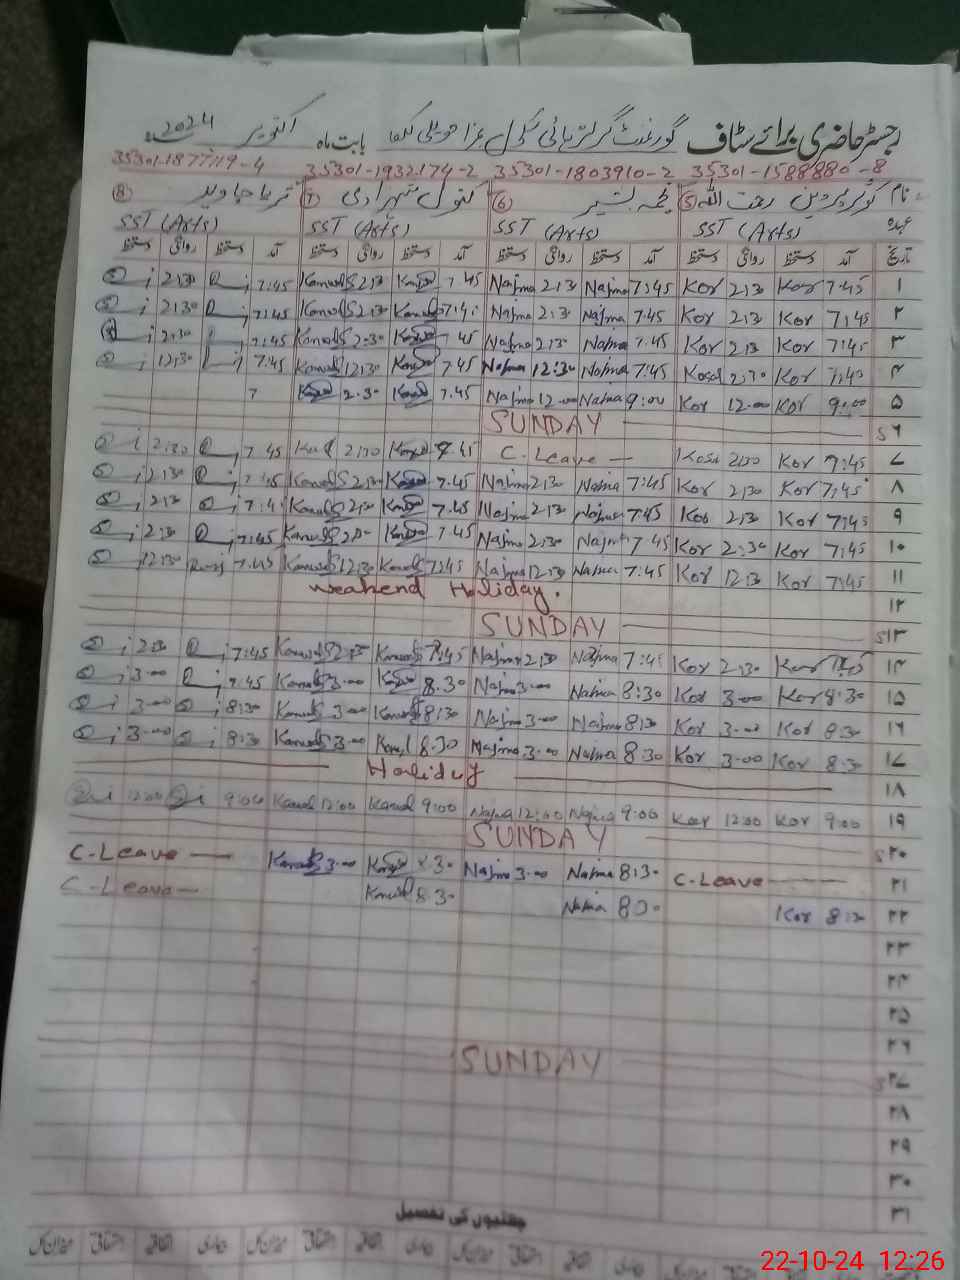 رجسٹر حاضری برائے سٹاف گورنمنٹ گرلز ہائی سکول بابت ماہ اکتوبر 2024
35301-1588880-8 35301-1803910-2 35301-1932174-2 35301-1877119-4
نام ⑤ کوثر پروین رحمت اللہ ⑥ نجمہ بشیر ⑦ کنول شہزادی ⑧ ثریا جاوید
عہدہ SST (Arts) SST (Arts) SST (Arts) SST (Arts)
تاریخ آمد دستخط روانگی دستخط آمد دستخط روانگی دستخط آمد دستخط روانگی دستخط آمد دستخط روانگی دستخط
۱ 7:45 Kor 2:30 Kor 7:45 Najma 2:30 Najma 7:45 Kanwal 2:30 Kanwal 7:45 2:30
۲ 7:45 Kor 2:30 Kor 7:45 Najma 2:30 Najma Kanwal 2:30 Kanwal 7:45 2:30
۳ 7:45 Kor 2:30 Kor 7:45 Najma 2:30 Najma 7:45 Kanwal 2:30 Kanwal 7:45 2:30
۴ 7:45 Kor 2:30 7:45 Najma 12:30 Najma 7:45 Kanwal 12:30 Kanwal 7:45 12:30
۵ 9:00 Kor 12:00 Kor 9:00 Najma 12:00 Najma 7:45 Kanwal 2:30 Kanwal 7
S۶ SUNDAY
۷ 7:45 Kor 2:30 C.Leave 7:45 2:30 7:45 2:30
۸ 7:45 Kor 2:30 Kor 7:45 Najma 2:30 Najma 7:45 Kanwal 2:30 Kanwal 7:45 2:30
۹ 7:45 Kor 2:30 Kor 7:45 Najma 2:30 Najma 7:45 Kanwal 2:30 Kanwal 2:30
۱۰ 7:45 Kor 2:30 Kor 7:45 Najma 2:30 Najma 7:45 Kanwal 2:30 Kanwal 7:45 2:30
۱۱ 7:45 Kor 12:30 Kor 7:45 Najma 12:30 Najma 7:45 Kanwal 12:30 Kanwal 7:45 12:30
۱۲ Weakend Holiday.
S۱۳ SUNDAY
۱۴ Kor 2:30 Kor 7:45 Najma 2:30 Najma 7:45 Kanwal 2:30 Kanwal 7:45 2:30
۱۵ 8:30 Kor 3:00 Kor 8:30 Najma 3:00 Najma 8:30 Kanwal 3:00 Kanwal 7:45 3:00
۱۶ 8:30 Kor 3:00 Kor 8:30 Najma 3:00 Najma 8:30 Kanwal 3:00 Kanwal 8:30 3:00
۱۷ 8:30 Kor 3:00 Kor 8:30 Najma 3:00 Najma 8:30 Kanwal 3:00 Kanwal 8:30 3:00
۱۸ Holiday
۱۹ 9:00 Kor 12:00 Kor 9:00 Najma 12:00 Najma 9:00 Kanwal 12:00 Kanwal 9:00 12:00
S۲۰ SUNDAY
۲۱ C-Leave 8:30 Najma 3:00 Najma 8:30 Kanwal 3:00 Kanwal C-Leave
۲۲ 8:30 Kor 8:30 Najma 8:30 Kanwal C-Leave
۲۳
۲۴
۲۵
۲۶
S۲۷ SUNDAY
۲۸
۲۹
۳۰
۳۱
چھٹیوں کی تفصیل
22-10-24 12:26